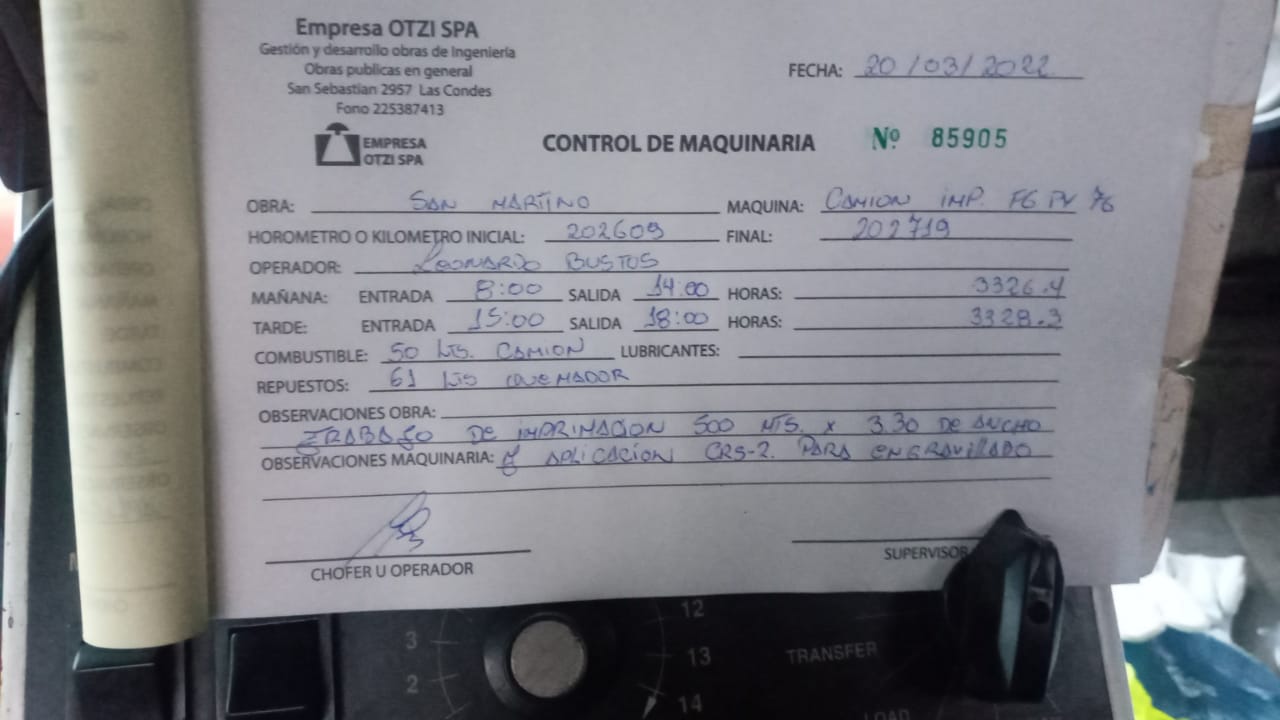 Empresa OTZI SPA
Gestión y desarrollo obras de Ingeniería
Obras publicas en general
San Sebastian 2957 Las Condes
Fono 225387413
EMPRESA
OTZI SPA
FECHA: 20/03/2022
CONTROL DE MAQUINARIA Nº 85905
OBRA: SAN MARTINO MAQUINA: CAMION IMP. FG PV 76
HOROMETRO O KILOMETRO INICIAL: 202609 FINAL: 202719
OPERADOR: LEONARDO BUSTOS
MAÑANA: ENTRADA 8:00 SALIDA 14:00 HORAS: 3326.4
TARDE: ENTRADA 15:00 SALIDA 18:00 HORAS: 3328.3
COMBUSTIBLE: 50 LTS. CAMION LUBRICANTES:
REPUESTOS: 61 LTS QUEMADOR
OBSERVACIONES OBRA:
TRABAJO DE IMPRIMACION 500 MTS. x 3.30 DE ANCHO
OBSERVACIONES MAQUINARIA: Y APLICACION CRS-2. PARA ENGRAVILLADO
CHOFER U OPERADOR
SUPERVISOR
12
3
13
TRANSFER
2
14
LOAD